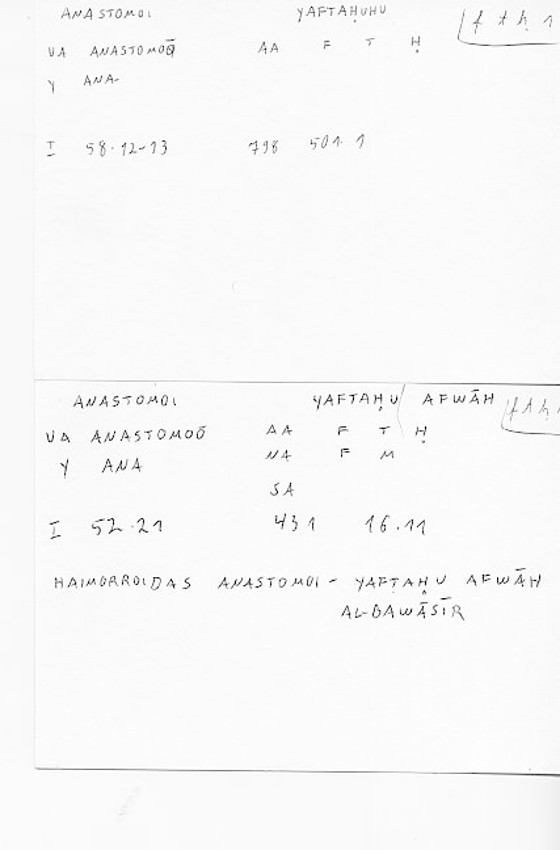 ANASTOMOI YAFTAḤUHU f t ḥ 1
VA ANASTOMOŌ AA F T Ḥ
Y ANA-
I 58.12-13 798 501.1
ANASTOMOI YAFTAḤU AFWĀH f t ḥ 1
VA ANASTOMOŌ AA F T Ḥ
Y ANA NA F M
SA
I 52.21 431 16.11
HAIMORROIDAS ANASTOMOI - YAFTAḤU AFWĀH
AL-BAWĀSĪR